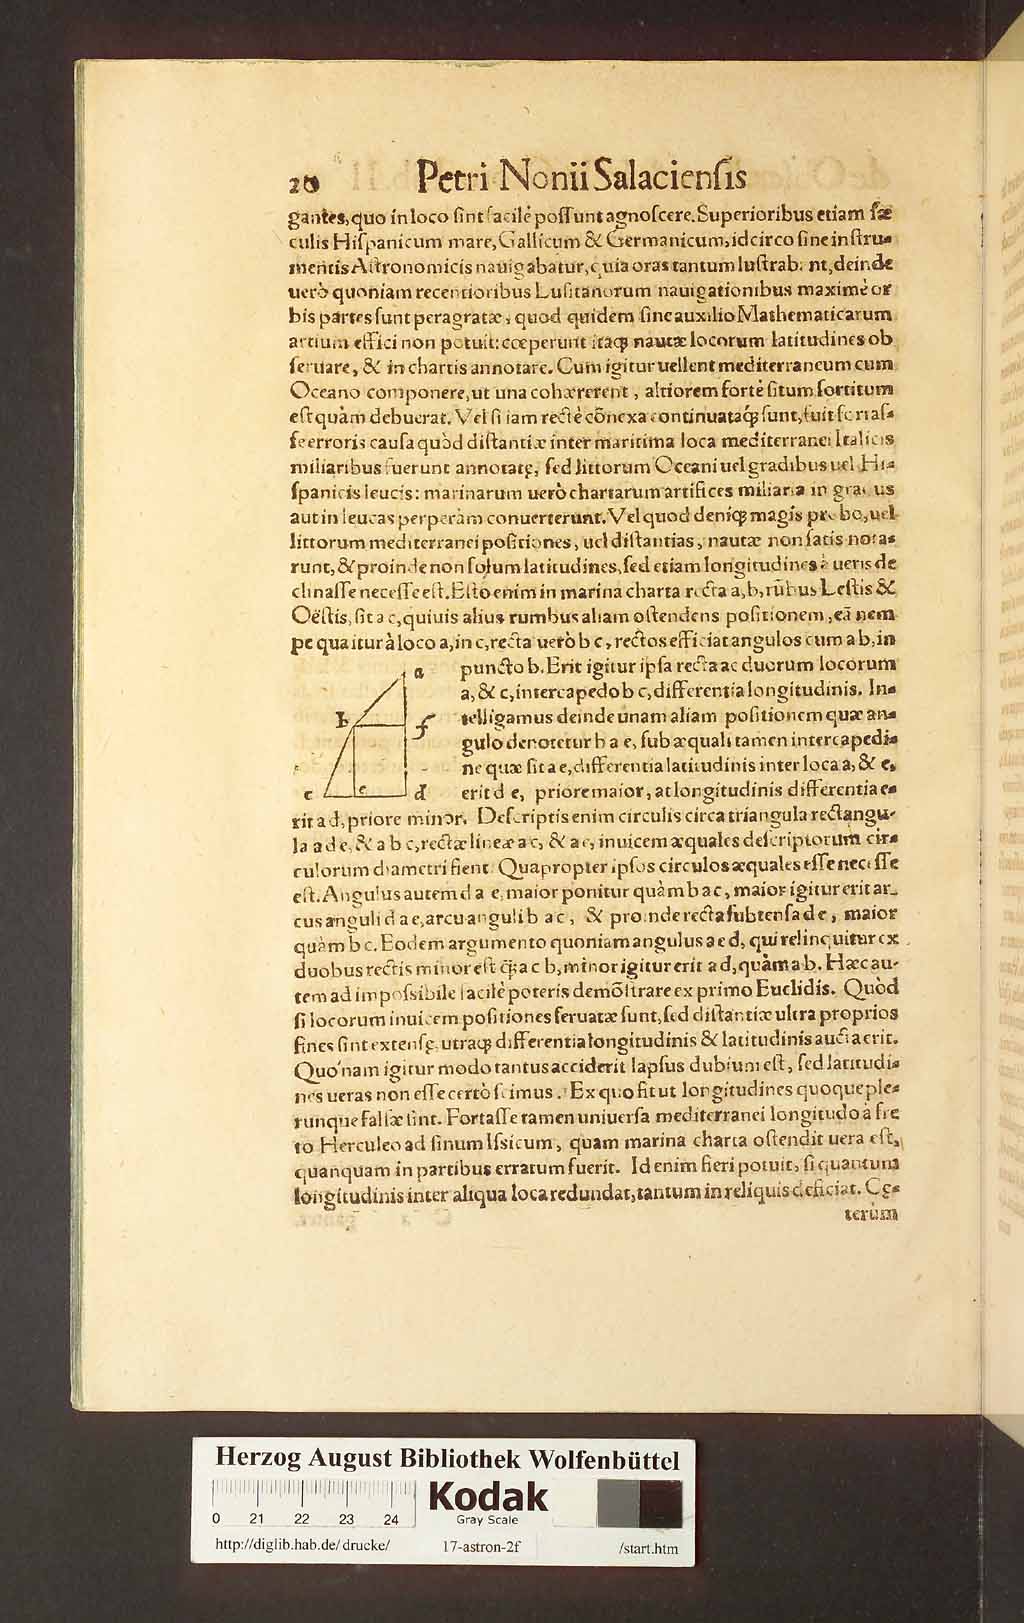 20 Petri Nonii Salaciensis
gantes, quo in loco ſint facilè poſſunt agnoſcere. Superioribus etiam ſæ
culis Hiſpanicum mare, Gallicum & Germanicum, idcirco ſine inſtru-
mentis Aſtronomicis nauigabatur, quia oras tantum luſtrabant, deinde
uerò quoniam recentioribus Luſitanorum nauigationibus maximè or
bis partes ſunt peragratæ, quod quidem ſine auxilio Mathematicarum
artium effici non potuit: cœperunt itaqꝫ nautæ locorum latitudines ob
ſeruare, & in chartis annotare. Cum igitur uellent mediterraneum cum
Oceano componere, ut una cohærerent, altiorem fortè ſitum ſortitum
eſt quàm debuerat. Vel ſi iam rectè cõnexa continuataqꝫ ſunt, fuit fortaſ-
ſe erroris cauſa quòd diſtantiæ inter maritima loca mediterranei Italicis
miliaribus fuerunt annotatę, ſed littorum Oceani uel gradibus uel Hi-
ſpanicis leucis: marinarum uerò chartarum artifices miliaria in gradus
aut in leucas perperàm conuerterunt. Vel quod deniqꝫ magis probo, uel
littorum mediterranei poſitiones, uel diſtantias, nautæ non ſatis nota-
runt, & proinde non ſolum latitudines, ſed etiam longitudines à ueris de
clinaſſe neceſſe eſt. Eſto enim in marina charta recta a, b, rũbus Leſtis &
Oëſtis, ſit a c, quiuis alius rumbus aliam oſtendens poſitionem, eã nem
pe qua itur à loco a, in c, recta uerò b c, rectos efficiat angulos cum a b, in
puncto b. Erit igitur ipſa recta ac duorum locorum
a, & c, intercapedo b c, differentia longitudinis. In-
telligamus deinde unam aliam poſitionem quæ an-
gulo denotetur b a e, ſub æquali tamen intercapedi-
ne quæ ſit a e, differentia latitudinis inter loca a, & e,
erit d e, priore maior, at longitudinis differentia e-
a
b
f
c
e
d
rit a d, priore minor. Deſcriptis enim circulis circa triangula rectangu-
la a d e, & a b c, rectæ lineæ a c, & a e, inuicem æquales deſcriptorum cir-
culorum diametri fient. Quapropter ipſos circulos æquales eſſe neceſſe
eſt. Angulus autem d a e, maior ponitur quàm b a c, maior igitur erit ar-
cus anguli d a e, arcu anguli b a c, & proinde recta ſubtenſa d e, maior
quàm b c. Eodem argumento quoniam angulus a e d, qui relinquitur ex
duobus rectis minor eſt qꝫ a c b, minor igitur erit a d, quàm a b. Hæc au-
tem ad impoſsibile facilè poteris demõſtrare ex primo Euclidis. Quòd
ſi locorum inuicem poſitiones ſeruatæ ſunt, ſed diſtantiæ ultra proprios
fines ſint extenſę, utraqꝫ differentia longitudinis & latitudinis aucta erit.
Quo'nam igitur modo tantus acciderit lapſus dubium eſt, ſed latitudi-
nes ueras non eſſe certò ſcimus. Ex quo fit ut longitudines quoque ple-
runque falſæ ſint. Fortaſſe tamen uniuerſa mediterranei longitudo à fre
to Herculeo ad ſinum Iſsicum, quam marina charta oſtendit uera eſt,
quanquam in partibus erratum fuerit. Id enim fieri potuit, ſi quantum
longitudinis inter aliqua loca redundat, tantum in reliquis deficiat. Cę-
terùm
Herzog August Bibliothek Wolfenbüttel
0 21 22 23 24
Kodak
Gray Scale
http://diglib.hab.de/drucke/ 17-astron-2f /start.htm